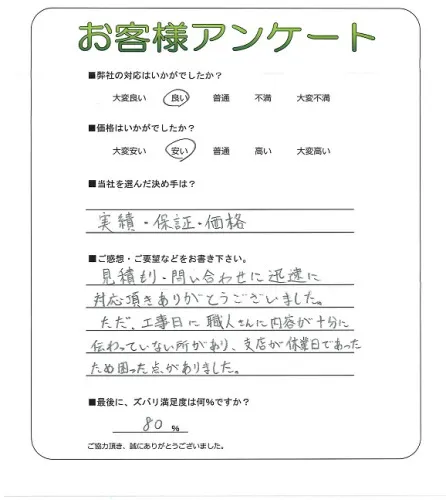 お客様アンケート
■弊社の対応はいかがでしたか？
大変良い 良い 普通 不満 大変不満
■価格はいかがでしたか？
大変安い 安い 普通 高い 大変高い
■当社を選んだ決め手は？
実績・保証・価格
■ご感想・ご要望などをお書き下さい。
見積もり・問い合わせに迅速に
対応頂きありがとうございました。
ただ、工事日に職人さんに内容が十分に
伝わっていない所があり、支店が休業日であった
ため困った点がありました。
■最後に、ズバリ満足度は何%ですか？
80 %
ご協力頂き、誠にありがとうございました。